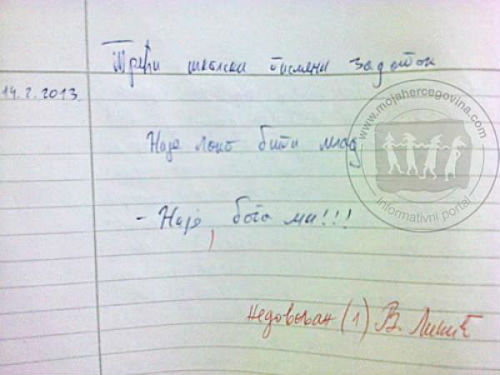 Трећи школски писмени задатак
14.2.2013.
Није лако бити млад
- Није, бога ми!!!
Недовољан (1) В. Ликић
www.mojahercegovina.com
Informativni portal